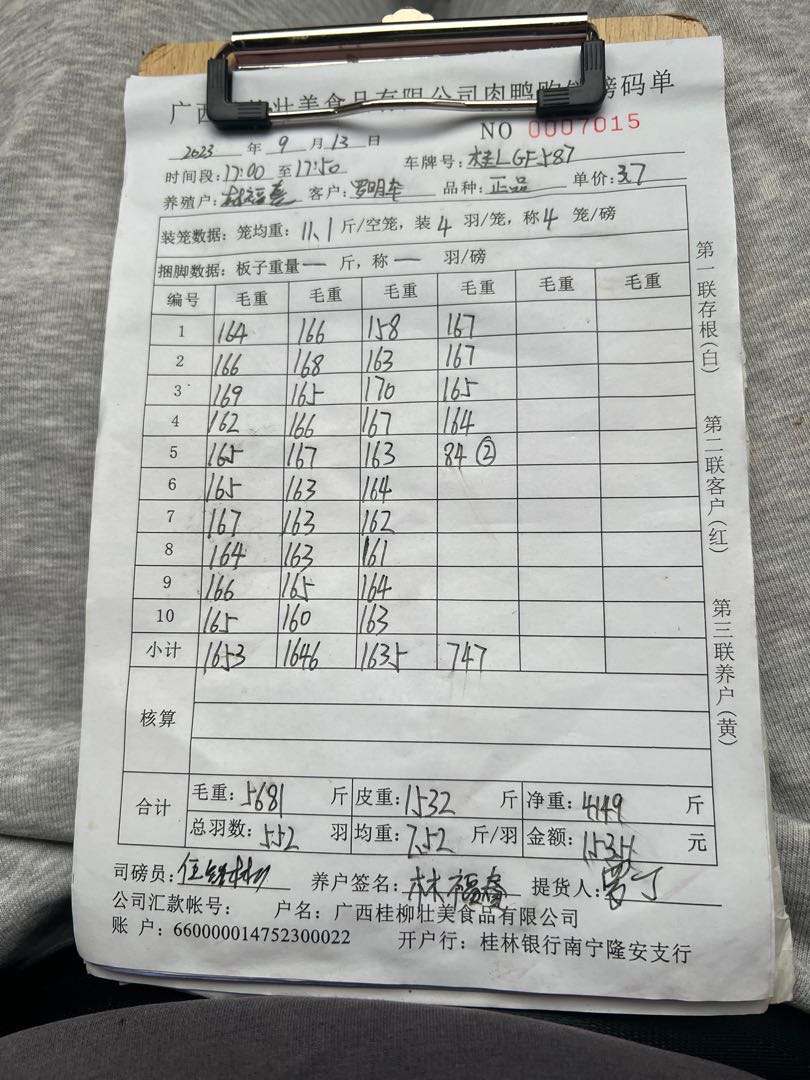 广西 壮美食品有限公司肉鸭购销磅码单
NO 0007015
2023 年 9 月 13 日
时间段: 17:00 至 17:50 车牌号: 桂LGF587
养殖户: 林福 客户: 罗明 品种: 正品 单价: 3.7
装笼数据: 笼均重: 11.1 斤/空笼, 装 4 羽/笼, 称 4 笼/磅
捆脚数据: 板子重量 — 斤, 称 — 羽/磅
编号 毛重 毛重 毛重 毛重 毛重 毛重
1 164 166 158 167
2 166 168 163 167
3 169 165 170 165
4 162 166 167 164
5 165 167 163 84 ②
6 165 163 164
7 167 163 162
8 164 163 161
9 166 165 164
10 165 160 163
小计 1653 1646 1635 747
核算
合计 毛重: 5681 斤 皮重: 1532 斤 净重: 4149 斤
总羽数: 552 羽 均重: 7.52 斤/羽 金额: 15351 元
司磅员: 养户签名: 林福 提货人:
公司汇款帐号: 户名: 广西桂柳壮美食品有限公司
账 户: 660000014752300022 开户行: 桂林银行南宁隆安支行
第一联存根(白)
第二联客户(红)
第三联养户(黄)